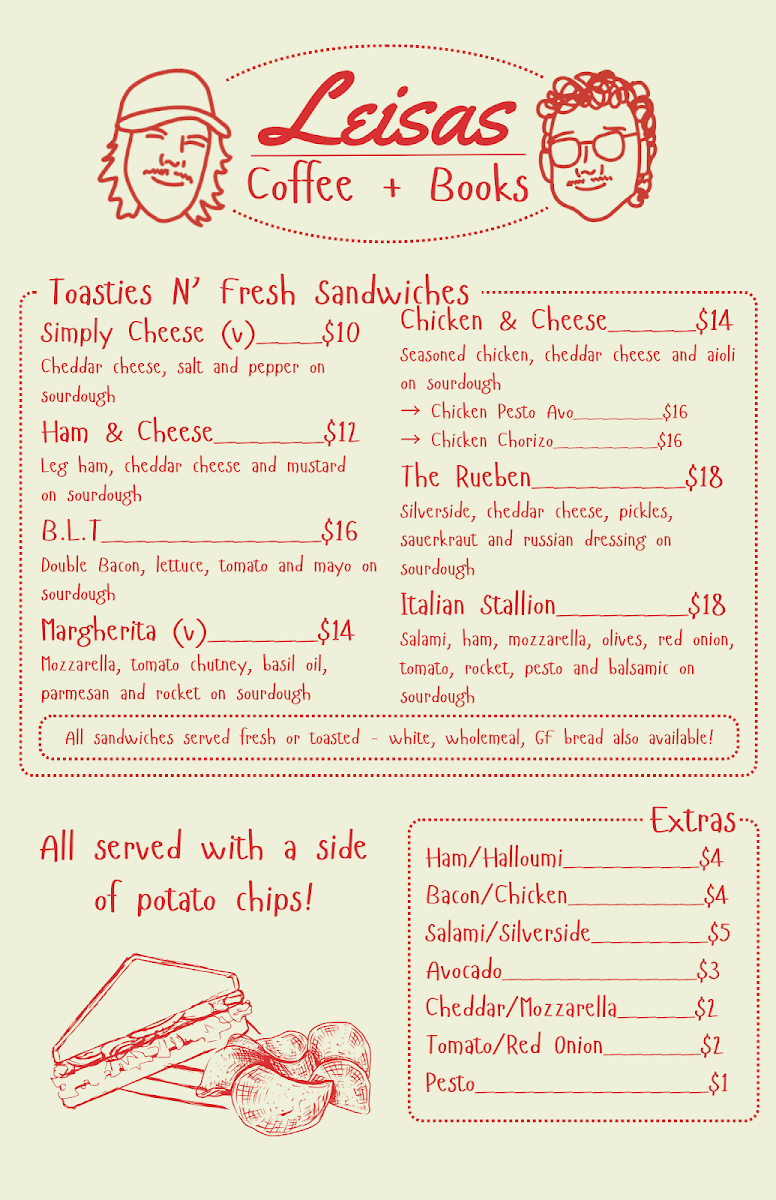 Leisas
Coffee + Books
Toasties N' Fresh Sandwiches
Simply Cheese (v)_____$10
Cheddar cheese, salt and pepper on
sourdough
Ham & Cheese________$12
Leg ham, cheddar cheese and mustard
on sourdough
B.L.T________________$16
Double Bacon, lettuce, tomato and mayo on
sourdough
Margherita (v)________$14
Mozzarella, tomato chutney, basil oil,
parmesan and rocket on sourdough
Chicken & Cheese_______$14
Seasoned chicken, cheddar cheese and aioli
on sourdough
→ Chicken Pesto Avo__________$16
→ Chicken Chorizo___________$16
The Rueben___________$18
Silverside, cheddar cheese, pickles,
sauerkraut and russian dressing on
sourdough
Italian Stallion__________$18
Salami, ham, mozzarella, olives, red onion,
tomato, rocket, pesto and balsamic on
sourdough
All sandwiches served fresh or toasted - white, wholemeal, GF bread also available!
All served with a side
of potato chips!
Extras
Ham/Halloumi____________$4
Bacon/Chicken____________$4
Salami/Silverside__________$5
Avocado_________________$3
Cheddar/Mozzarella_______$2
Tomato/Red Onion_________$2
Pesto____________________$1